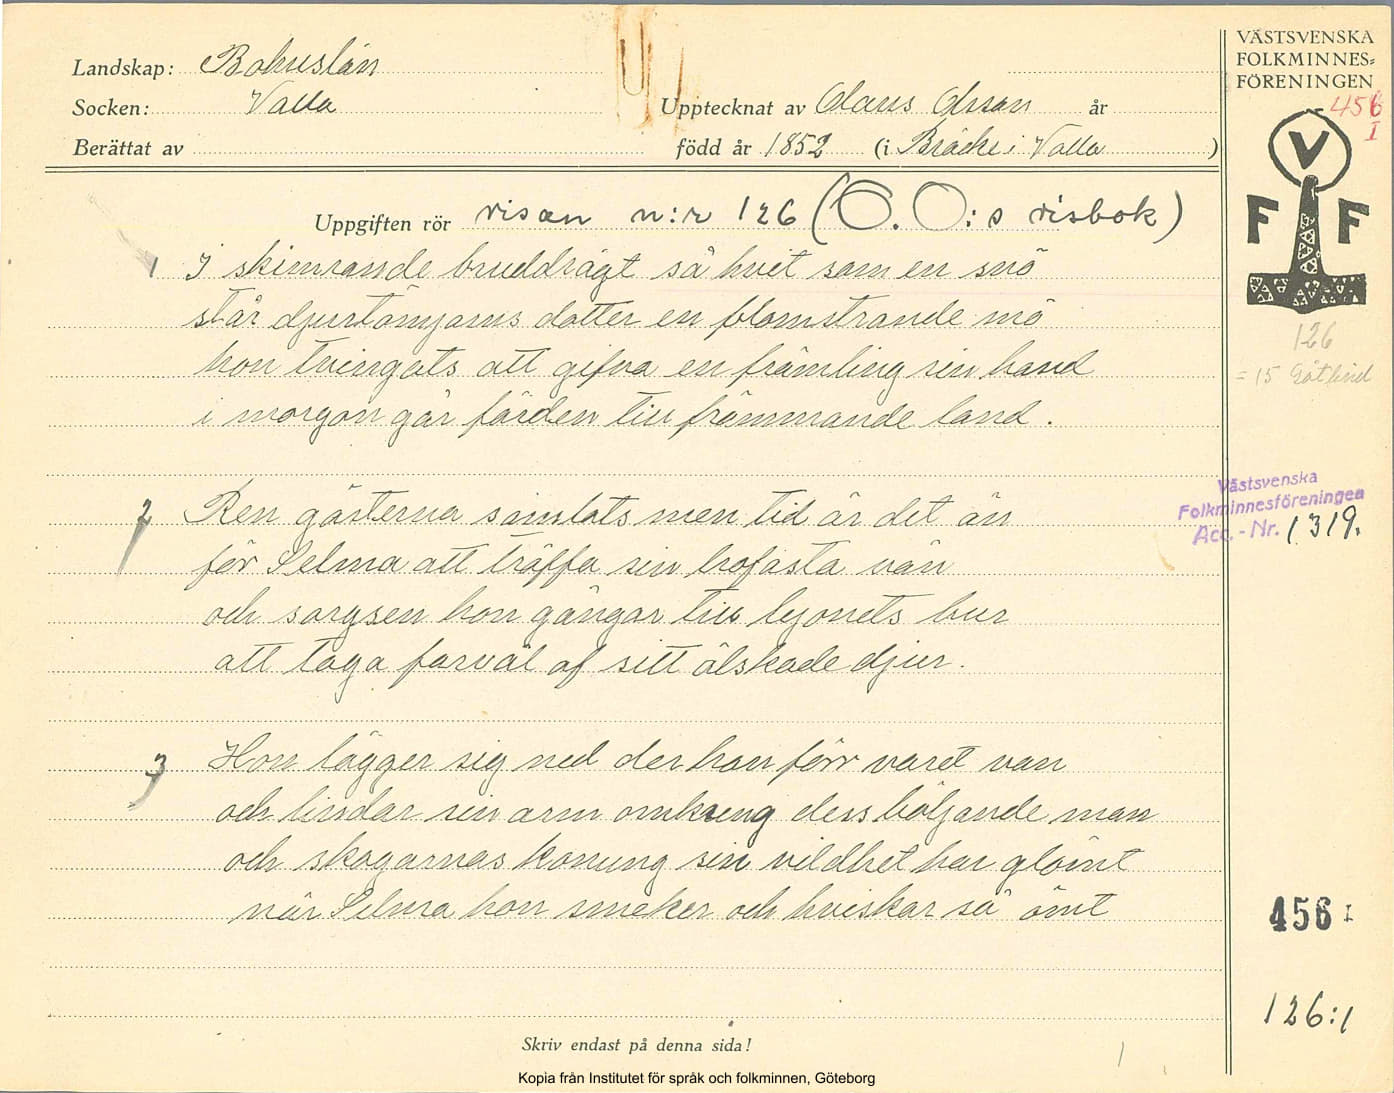 Landskap: Bohuslän
Socken: Valla
Berättat av
Upptecknat av Olaus Olsson år
född år 1852 (i Bräcke i Valla )
VÄSTSVENSKA
FOLKMINNES=
FÖRENINGEN
456
I
V
F F
Uppgiften rör visan n:r 126 (O. O:s visbok)
1 I skimrande bruddrägt så hvit som en snö
står djurtämjarns dotter en blomstrande mö
hon tvingats att gifva en främling sin hand
i morgon går färden till främmande land.
2 Ren gästerna samlats men tid är det än
för Selma att träffa sin trofasta vän
och sorgsen hon gångar till lejonets bur
att taga farväl af sitt älskade djur.
3 Hon lägger sig ned der hon förr varet van
och lindar sin arm omkreng dess böljande man
och skogarnas konung sin vildhet har glömt
när Selma hon smeker och hviskar så ömt
126
= 15 Götlind
Västsvenska
Folkminnesföreningen
Acc.-Nr. 1319.
456 I
126:1
Skriv endast på denna sida!
Kopia från Institutet för språk och folkminnen, Göteborg